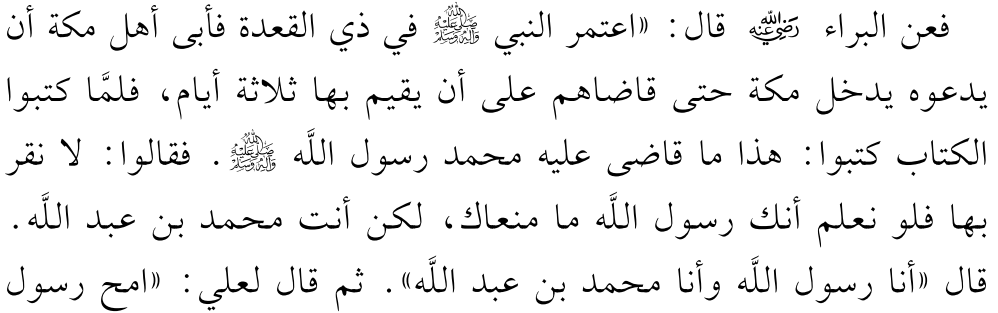 فعن البراء رضي الله عنه قال: «اعتمر النبي صلى الله عليه وآله وسلم في ذي القعدة فأبى أهل مكة أن
يدعوه يدخل مكة حتى قاضاهم على أن يقيم بها ثلاثة أيام، فلمَّا كتبوا
الكتاب كتبوا: هذا ما قاضى عليه محمد رسول اللَّه صلى الله عليه وآله وسلم. فقالوا: لا نقر
بها فلو نعلم أنك رسول اللَّه ما منعاك، لكن أنت محمد بن عبد اللَّه.
قال «أنا رسول اللَّه وأنا محمد بن عبد اللَّه». ثم قال لعلي: «امح رسول